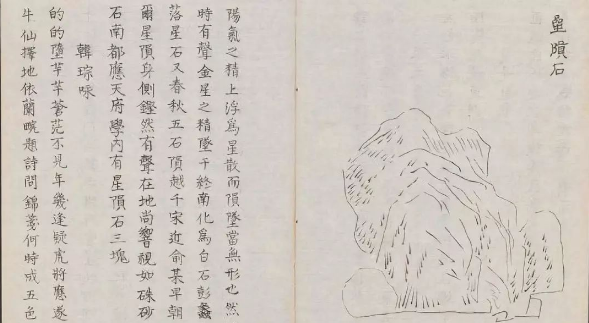 星隕石
陽氣之精上浮為星散而隕墜當無形也然
時有聲金星之精墜于終南化為白石彭蠡
落星石又春秋五石隕越千宋近俞某早朝
爾星隕身側鏗然有聲在地尚響視如硃砂
石南都應天府學內有星隕石三塊
韓琮咏
的的墮芊芊蒼茫不見年幾逢疑虎將應逐
牛仙擇地依蘭畹題詩問錦箋何時成五色